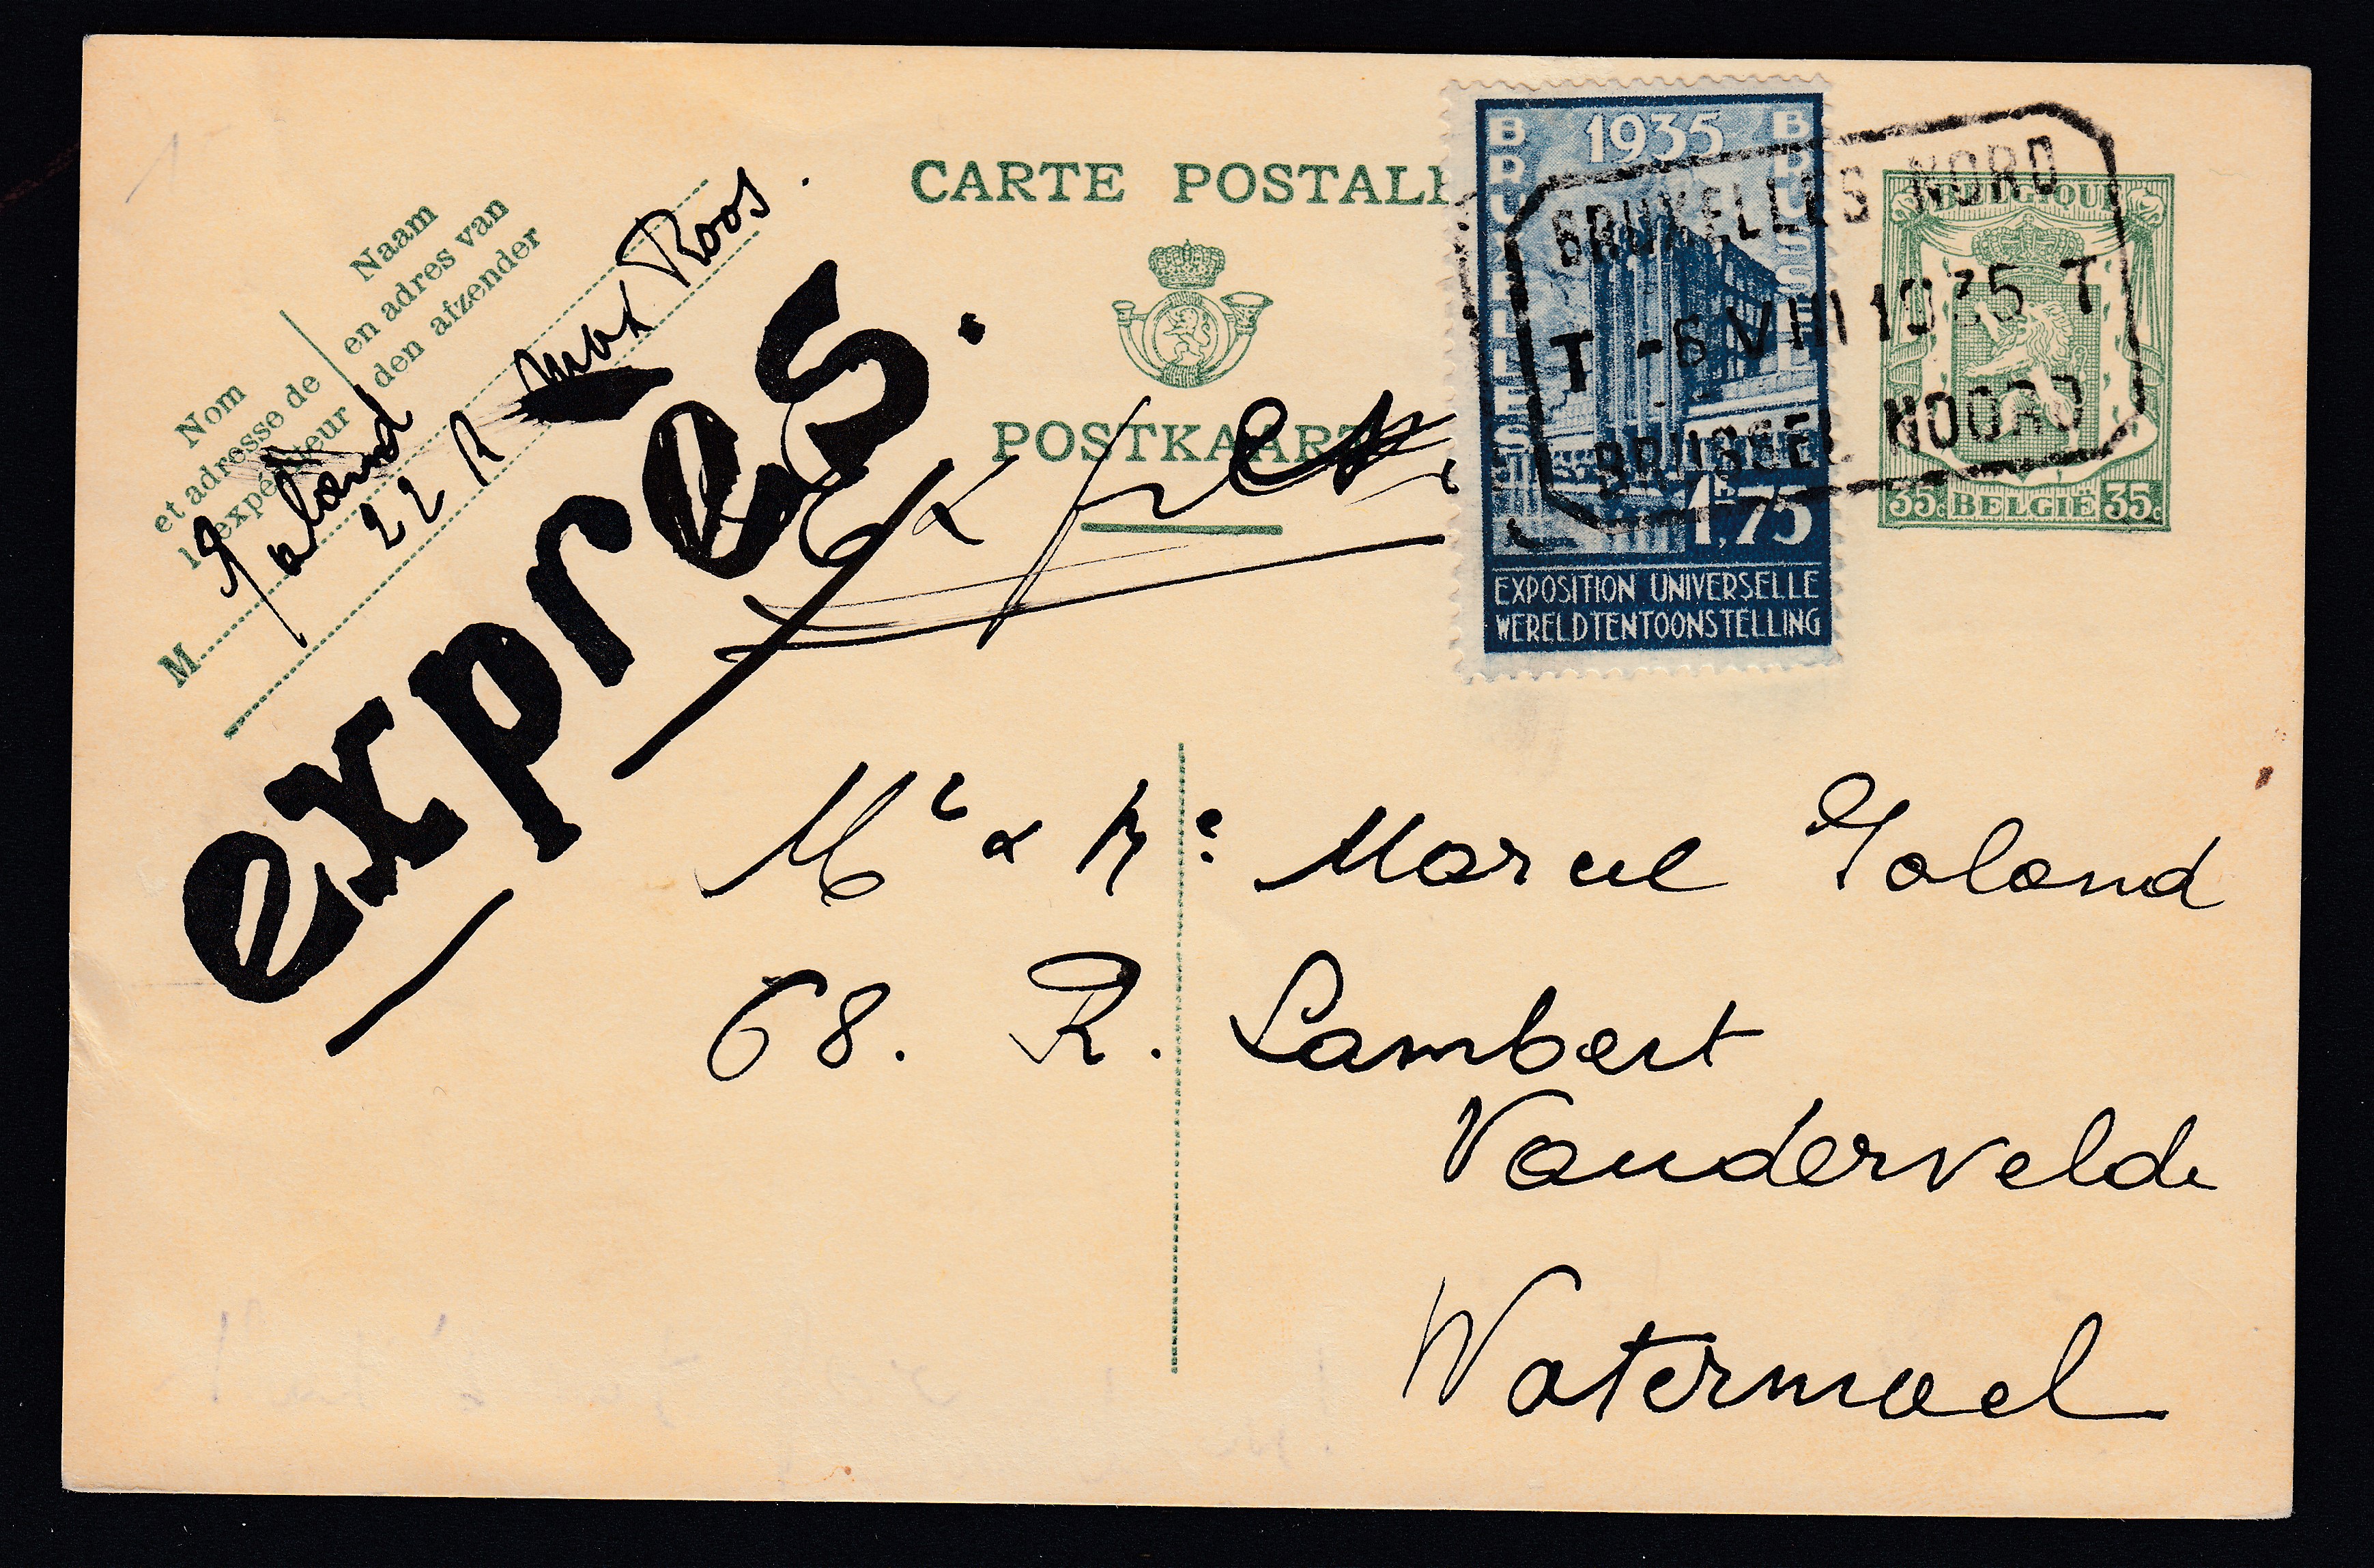 CARTE POSTALE
POSTKAART
Naam
en adres van
den afzender
Nom
et adresse de
l'expéditeur
M
Goland
22 R Max Roos.
exprès.
1935
BRUXELLES
BRUSSEL
1F75
EXPOSITION UNIVERSELLE
WERELDTENTOONSTELLING
BRUXELLES NORD
T -6 VIII 1935 T
BRUSSEL NOORD
BELGIQUE
35c BELGIË 35c
Mr & Me Marcel Goland
68. R. Lambert
Vandervelde
Watermael